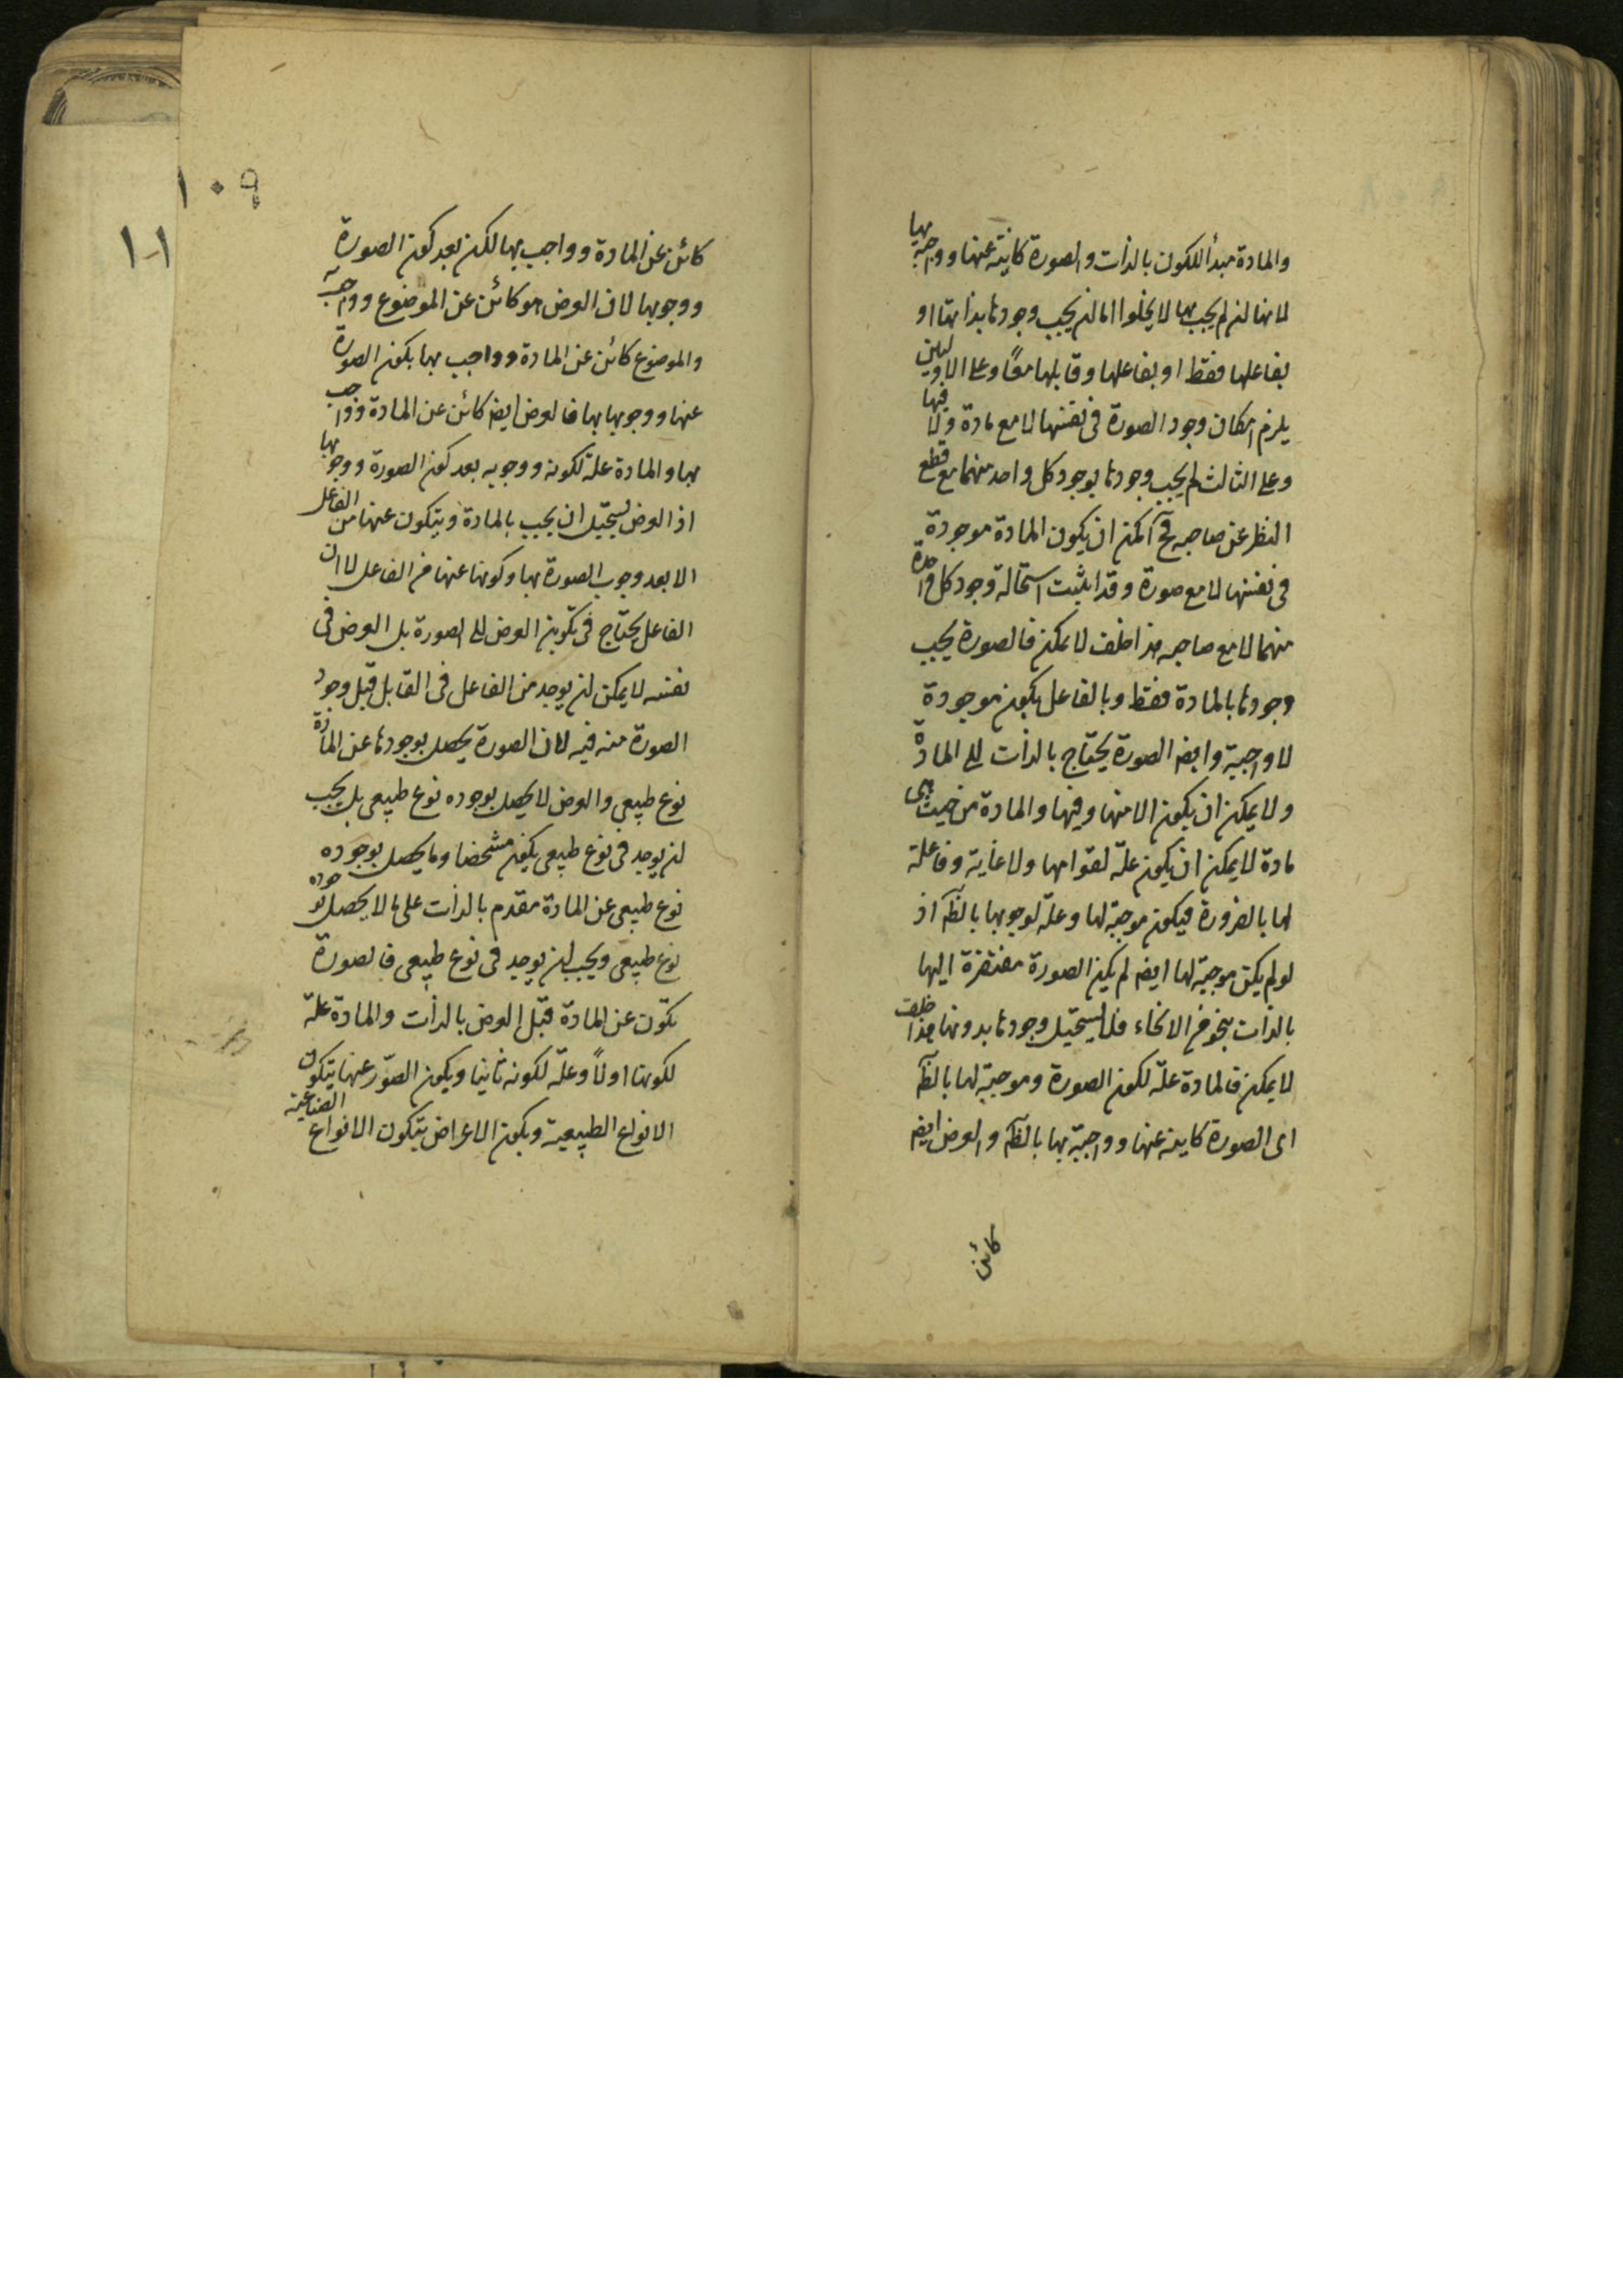 والمادة مبدأ للكون بالذات والصورة كاينة عنها وواجبة بها
لانها لن لم يجب بها لا يخلوا اما لن يجب وجودها بذاتها او
بفاعلها فقط او بفاعلها وقابلها معًا وعلى الاولين
يلزم امكان وجود الصورة فى نفسها لا مع مادة ولا فيها
وعلى الثالث لم يجب وجودها بوجود كل واحد منهما مع قطع
النظر عن صاحبه فح آ لكن ان يكون المادة موجودة
فى نفسها لا مع صورة وقد اثبت استحالة وجود كل واحدة
منهما لا مع صاحبه هذا خلف لا يمكن فالصورة يجب
وجودها بالمادة فقط وبالفاعل يكون موجودة
لا واجبة وايضا الصورة يحتاج بالذات الى المادة
ولا يمكن ان يكون الا منها وفيها والمادة من حيث هى
مادة لا يمكن ان يكون علة لقوامها ولا غاية وفاعلة
لها بالضرورة فيكون موجبة لها وعلة لوجوبها بالظآ اذ
لو لم يكن موجبة لها ايضا لم يكن الصورة مفتقرة اليها
بالذات بنحو من الانحاء فلا يستحيل وجودها بدونها هذا خلف
لا يمكن فالمادة علة لكون الصورة وموجبة لها بالظآ
اى الصورة كاينة عنها وواجبة بها بالظآ والعرض ايضا
كائن
١٠٩
١٠١
كائن عن المادة وواجب بها لكن بعد كون الصورة
ووجوبها لان العرض هو كائن عن الموضوع وواجب به
والموضوع كائن عن المادة وواجب بها بكون الصورة
عنها ووجوبها بها فالعرض ايضا كائن عن المادة وواجب
بها والمادة علة لكونه ووجوبه بعد كون الصورة ووجوبها
اذ العرض يستحيل ان يجب بالمادة ويتكون عنها من الفاعل
الا بعد وجوب الصورة بها وكونها عنها من الفاعل لا ان
الفاعل يحتاج فى تكوين العرض الى الصورة بل العرض فى
نفسه لا يمكن لن يوجد من الفاعل فى القابل قبل وجود
الصورة منه فيه لان الصورة يحصل بوجودها عن المادة
نوع طبيعى والعرض لا يحصل بوجوده نوع طبيعى بل يجب
لن يوجد فى نوع طبيعى يكون مشخصا وما يحصل بوجوده
نوع طبيعى عن المادة مقدم بالذات على ما لا يحصل بوجوده
نوع طبيعى ويجب لن يوجد فى نوع طبيعى فالصورة
تكون عن المادة قبل العرض بالذات والمادة علة
لكونها اولاً وعلة لكونه ثانيا ويكون الصور عنها يتكون
الانواع الطبيعية وبكون الاعراض يتكون الانواع الصناعية